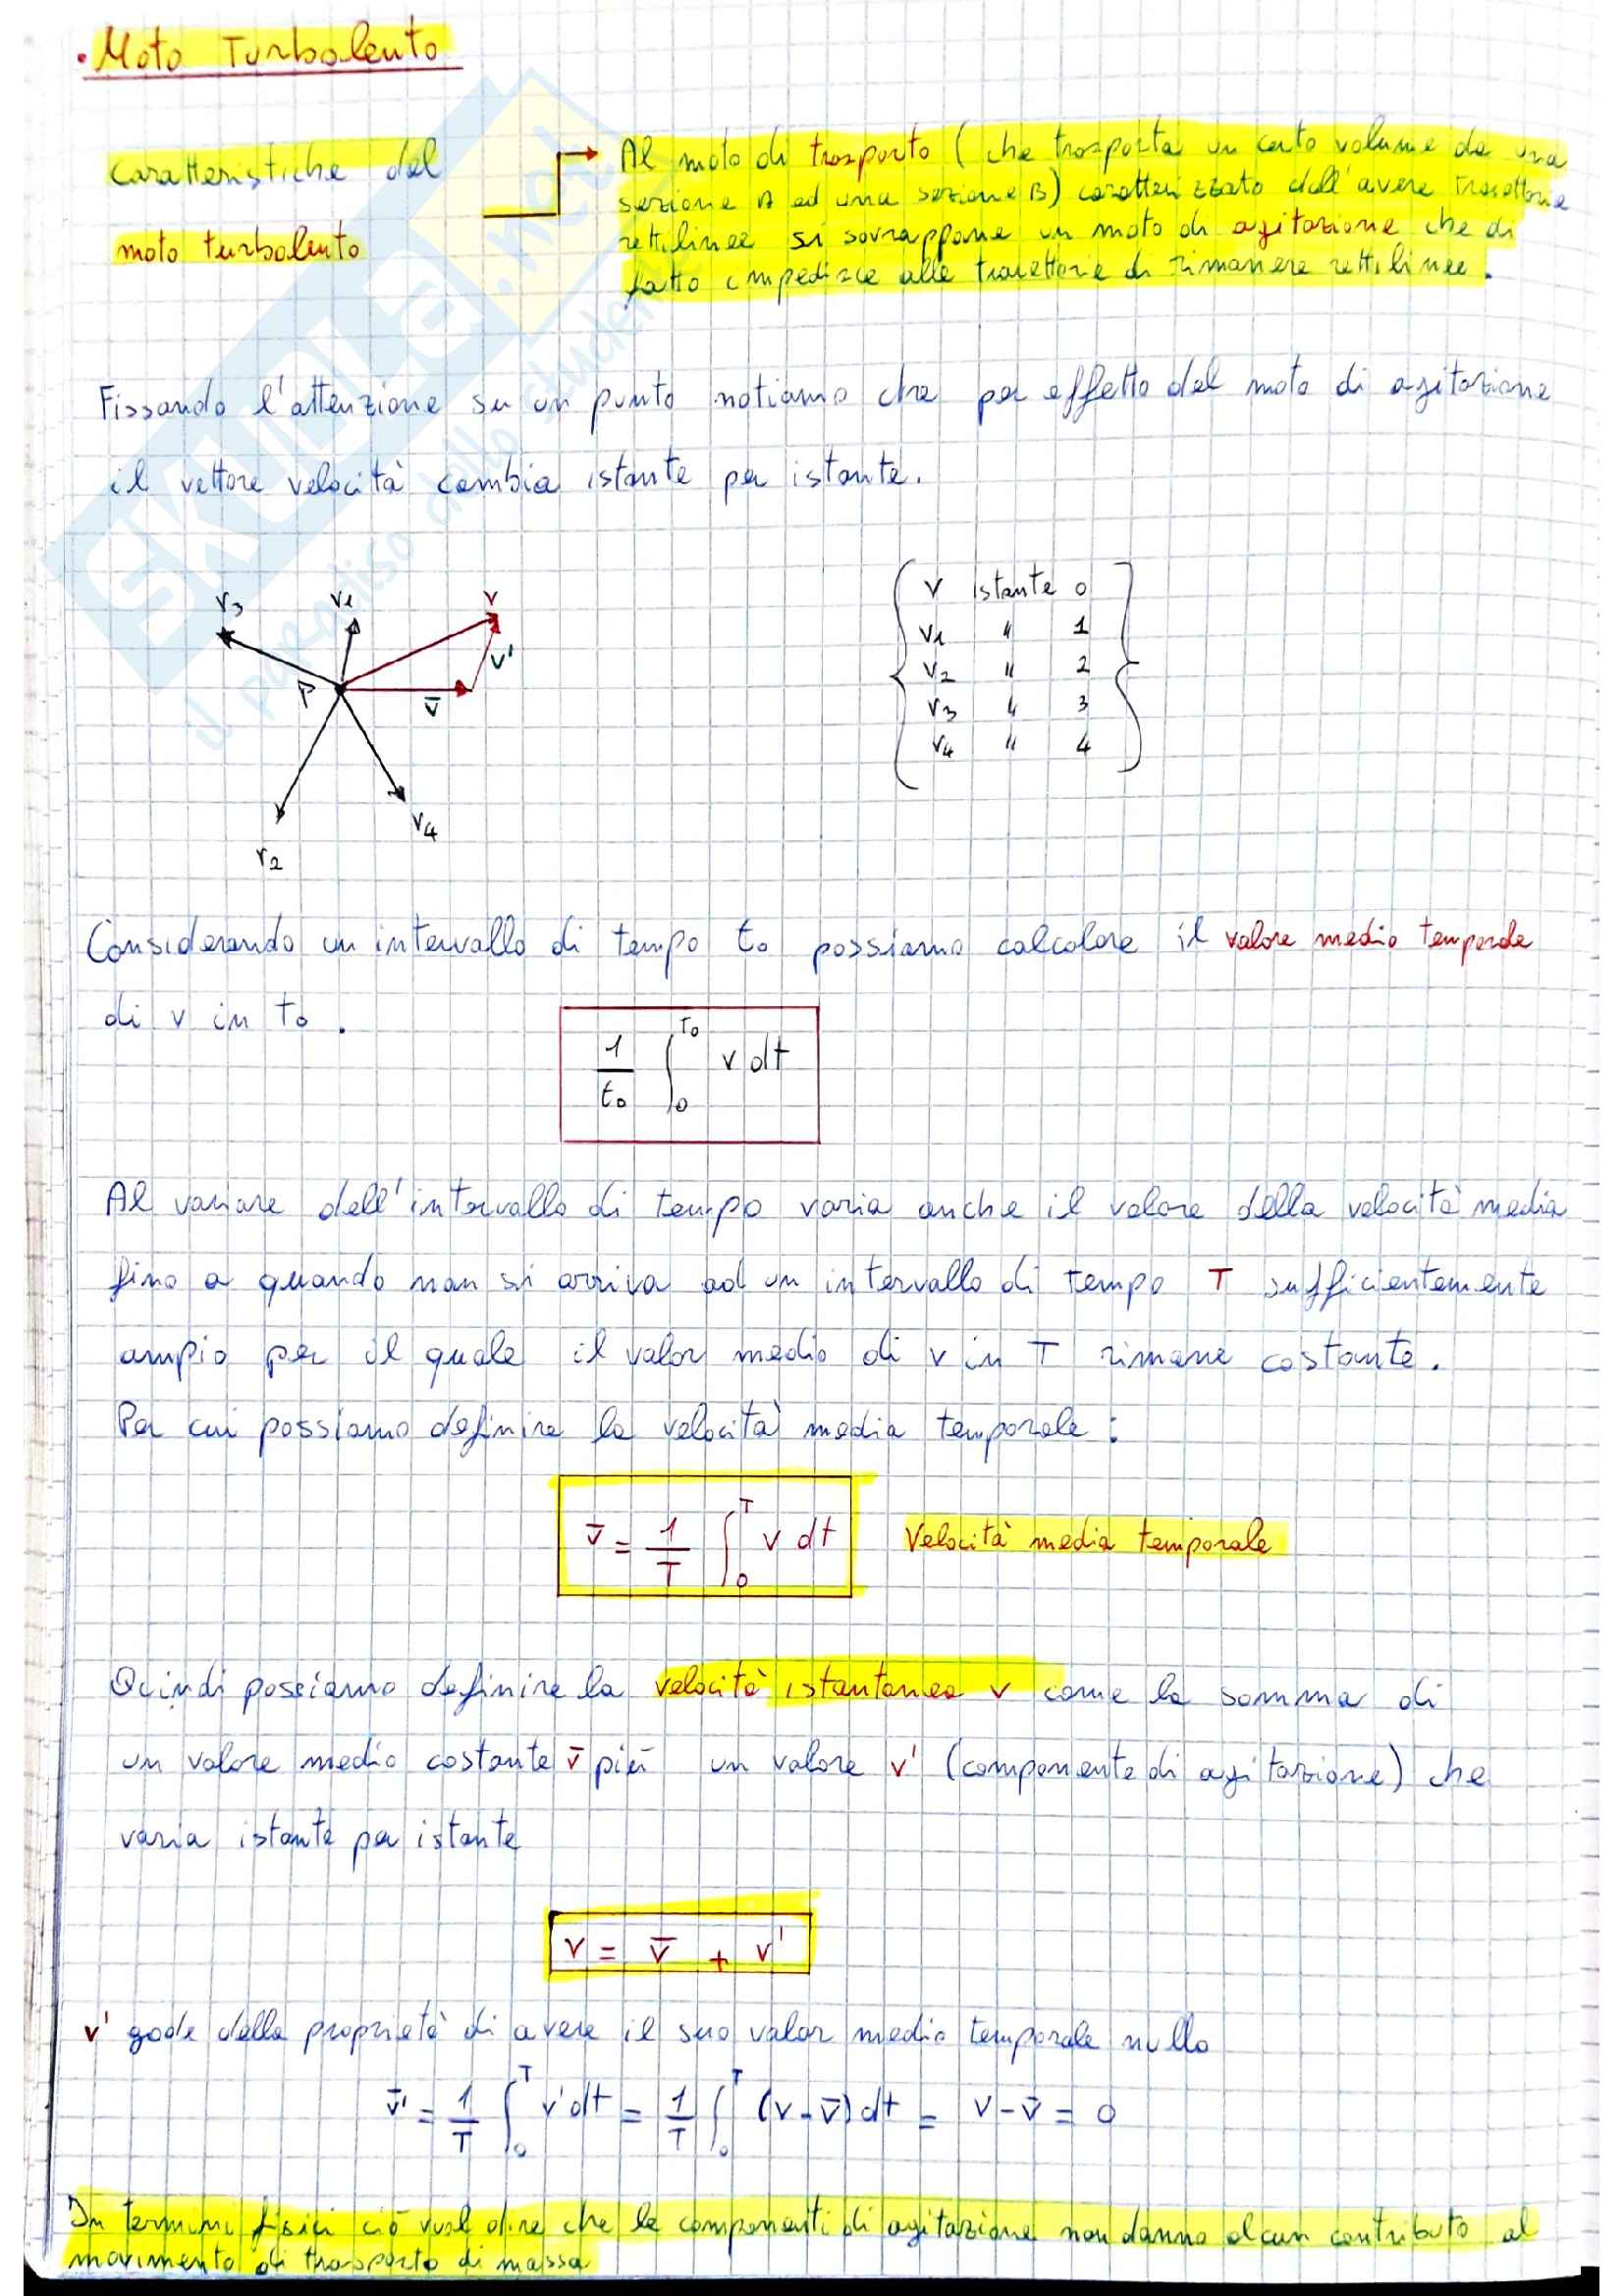 • Moto Turbolento
caratteristiche del
moto turbolento
Al moto di trasporto (che trasporta un certo volume da una
sezione A ad una sezione B) caratterizzato dall'avere traiettorie
rettilinee si sovrappone un moto di agitazione che di
fatto impedisce alle traiettorie di rimanere rettilinee.
Fissando l'attenzione su un punto notiamo che per effetto del moto di agitazione
il vettore velocità cambia istante per istante.
v3 v1 v
v'
P v̄
v4
v2
v istante 0
v1 " 1
v2 " 2
v3 " 3
v4 " 4
Considerando un intervallo di tempo t₀ possiamo calcolare il valore medio temporale
di v in t₀.
1/t₀ ∫₀^t₀ v dt
Al variare dell'intervallo di tempo varia anche il valore della velocità media
fino a quando non si arriva ad un intervallo di tempo T sufficientemente
ampio per il quale il valor medio di v in T rimane costante.
Per cui possiamo definire la velocità media temporale:
v̄ = 1/T ∫₀^T v dt Velocità media temporale
Quindi possiamo definire la velocità istantanea v come la somma di
un valore medio costante v̄ più un valore v' (componente di agitazione) che
varia istante per istante
v = v̄ + v'
v' gode della proprietà di avere il suo valor medio temporale nullo
v̄' = 1/T ∫₀^T v'dt = 1/T ∫₀^T (v - v̄) dt = v - v̄ = 0
In termini fisici ciò vuol dire che le componenti di agitazione non danno alcun contributo al
movimento di trasporto di massa
SKUOLA.net
il paradiso dello studente